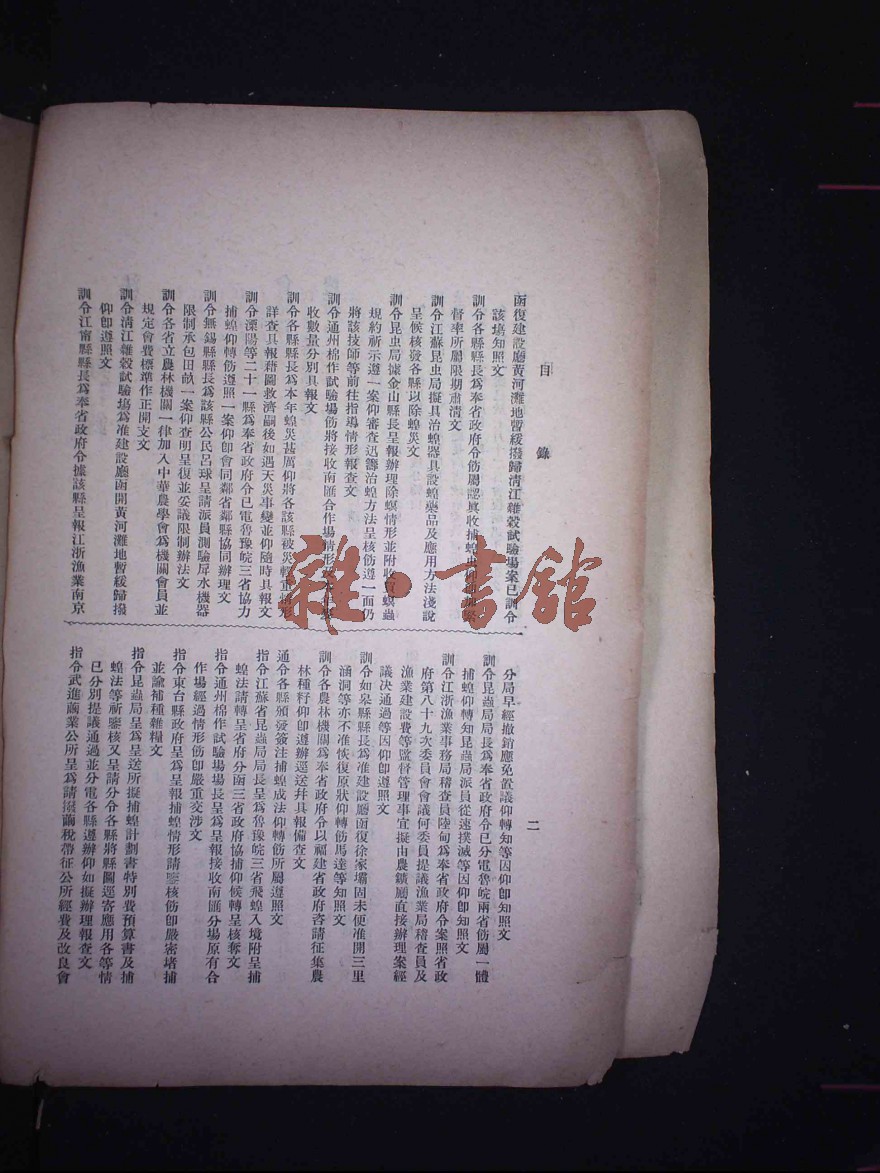 目錄
二
函復建設廳黃河灘地暫緩撥歸清江雜穀試驗場案已訓令
該場知照文
訓令各縣縣長爲奉省政府令飭屬認眞收捕蝗虫
督率所屬限期肅清文
訓令江蘇昆虫局擬具治蝗器具設蝗藥品及應用方法淺說
呈候核發各縣以除蝗災文
訓令昆虫局據金山縣長呈報辦理除螟情形並附收買螟蟲
規約祈示遵一案仰審查迅籌治蝗方法呈核飭遵一面仍
將該技師等前往指導情形報查文
訓令通州棉作試驗場飭將接收南匯合作場情形
收數量分別具報文
訓令各縣縣長爲本年蝗災甚厲仰將各該縣被災輕重情形
詳查具報藉圖救濟嗣後如遇天災事變並仰隨時具報文
訓令溧陽等二十一縣爲奉省政府令已電魯豫皖三省協力
捕蝗仰轉飭遵照一案仰卽會同鄰省鄰縣協同辦理文
訓令無錫縣縣長爲該縣公民呂球呈請派員測驗戽水機器
限制承包田畝一案仰查明呈復並妥議限制辦法文
訓令各省立農林機關一律加入中華農學會爲機關會員並
規定會費標準作正開支文
訓令清江雜穀試驗場爲准建設廳函開黃河灘地暫緩歸撥
仰卽遵照文
訓令江甯縣縣長爲奉省政府令據該縣呈報江浙漁業南京
分局早經撤銷應免置議仰轉知等因仰卽知照文
訓令昆蟲局局長爲奉省政府令已分電魯皖兩省飭屬一體
捕蝗仰轉知昆蟲局派員從速撲滅等因仰卽知照文
訓令江浙漁業事務局稽查員陸甸爲奉省政府令案照省政
府第八十九次委員會會議何委員提議漁業局稽查員及
漁業建設費等監督管理事宜擬由農鑛廳直接辦理案經
議決通過等因仰卽遵照文
訓令如皋縣縣長爲准建設廳函復徐家壩固未便准開三里
涵洞等亦不准恢復原狀仰轉飭馬達等知照文
訓令各農林機關爲奉省政府令以福建省政府咨請征集農
林種籽仰卽遵辦逕送幷具報備查文
通令各縣頒發簽注捕蝗成法仰轉飭所屬遵照文
指令江蘇省昆蟲局局長呈爲魯豫皖三省飛蝗入境附呈捕
蝗法請轉呈省府分函三省政府協捕仰候轉呈核奪文
指令通州棉作試驗場場長呈爲呈報接收南匯分場原有合
作場經過情形飭卽嚴重交涉文
指令東台縣政府呈爲呈報捕蝗情形請鑒核飭卽嚴密堵捕
並諭補種雜糧文
指令昆蟲局呈爲呈送所擬捕蝗計劃書特別費預算書及捕
蝗法等祈鑒核又呈請分令各縣將縣圖逕寄應用各等情
已分別提議通過並分電各縣遵辦仰如擬辦理報查文
指令武進繭業公所呈爲請撥繭稅帶征公所經費及改良會
雜·書館